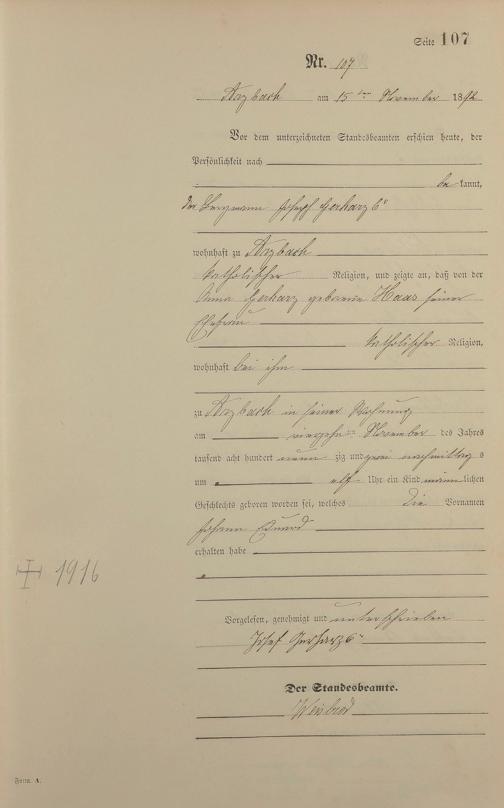 Seite 107
Nr. 107
Arzbach am 15ten November 1892
Vor dem unterzeichneten Standesbeamten erschien heute, der
Persönlichkeit nach
be kannt,
der Bergmann Joseph Gerharz 6r
wohnhaft zu Arzbach
katholischer Religion, und zeigte an, daß von der
Anna Gerharz geborene Haas seiner
Ehefrau
katholischer Religion,
wohnhaft bei ihm
zu Arzbach in seiner Wohnung
am vierzehn ten November des Jahres
tausend acht hundert neun zig und zwei nachmittag s
um elf Uhr ein Kind männ lichen
Geschlechts geboren worden sei, welches die Vornamen
Johann Eduard
erhalten habe
Vorgelesen, genehmigt und unterschrieben
Josef Gerharz 6r
Der Standesbeamte.
Weinbrod
Form. A.
1916